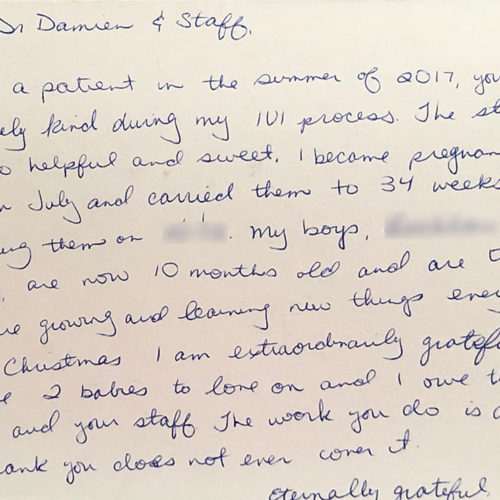 Dr Damien & Staff,
a patient in the summer of 2017, you
ely kind during my IUI process. The st
o helpful and sweet. I became pregnan
n July and carried them to 34 weeks
ing them on . My boys,
, are now 10 months old and are t
re growing and learning new things ever
Christmas I am extraordinarily gratefu
e 2 babies to love on and I owe t
and your staff. The work you do is a
hank you does not ever cover it.
Eternally grateful